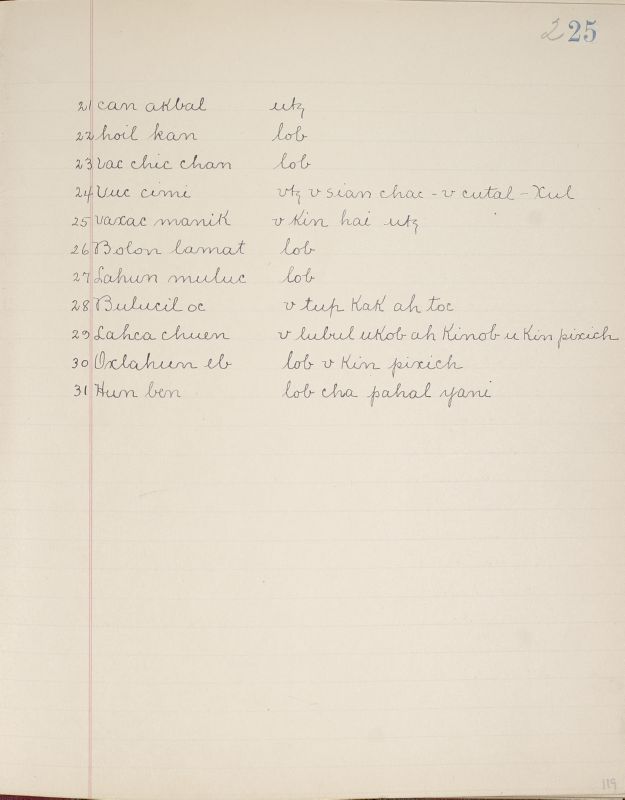 225
21 can akbal utz
22 hoil kan lob
23 vac chic chan lob
24 vuc cimi vtz v sian chac - v cutal - Xul
25 vaxac manik v kin hai utz
26 Bolon lamat lob
27 Lahun muluc lob
28 Bulucil oc v tup kak ah toc
29 Lahca chuen v lubul ukob ah kinob u kin pixich
30 Oxlahun eb lob v kin pixich
31 Hun ben lob cha pahal yani
119